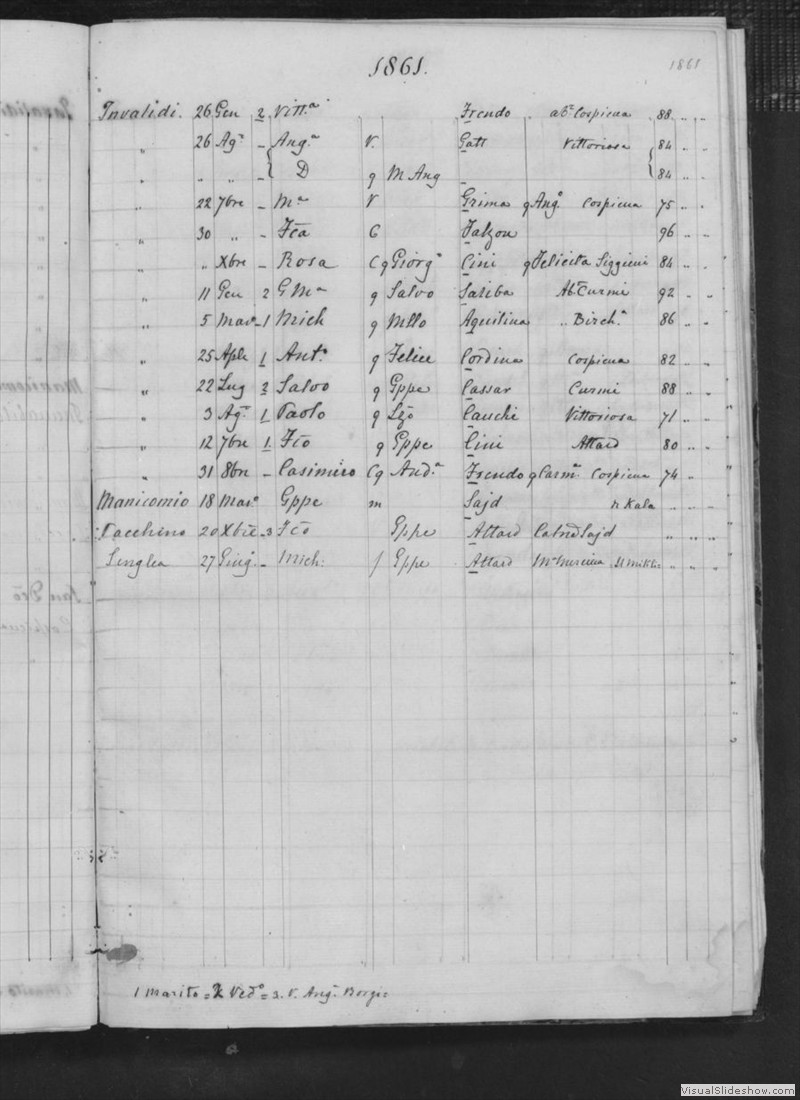 1861.
1861
Invalidi. 26 Gen 2 Vitt.a Frendo ab.e Cospicua 88 " "
" 26 Ag.o - Ang.a V. Gatt Vittoriosa 84 " "
" " " - D q M Ang - 84 " "
" 22 7bre - M.a V Grima q Ang.o Cospicua 75 " "
" 30 " - Fca C Falzon 96 " "
" " Xbre - Rosa C q Giorg.o Cini q Felicita Siggieui 84 " "
" 11 Gen 2 G M.a q Salvo Saliba Ab.e Curmi 92 " "
" 5 Mar.o - 1 Mich q Mllo Aquilina " Birch.a 86 " "
" 25 Aple 1 Ant.o q Felice Cordina Cospicua 82 " "
" 22 Lug 2 Salvo q Gppe Cassar Curmi 88 " "
" 3 Ag.o 1 Paolo q Lzo Cauchi Vittoriosa 71 " "
" 12 7bre 1 Fco q Gppe Cini Attard 80 " "
" 31 8bre - Casimiro C q And.a Frendo q Carm.a Cospicua 74 " "
Manicomio 18 Mar.o Gppe m Sajd n Kala " " "
20 Xbre - 3 Fco Gppe Attard Sajd " " "
Senglea 27 Giug.o - Mich: f Gppe Attard " " "
1 Marito = 2 Ved.o = 3. V. Ang.a Borg =
VisualSlideshow.com